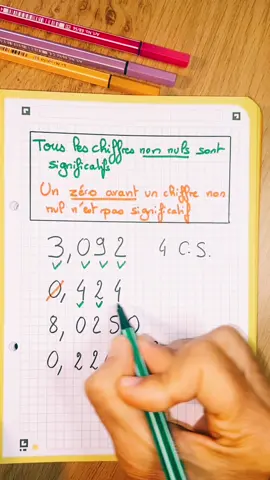 Tous les chiffres non nuls sont
significatifs
Un zéro avant un chiffre non
nul n'est pas significatif
3,092 4 C.S.
0,424
8,0250
0,22